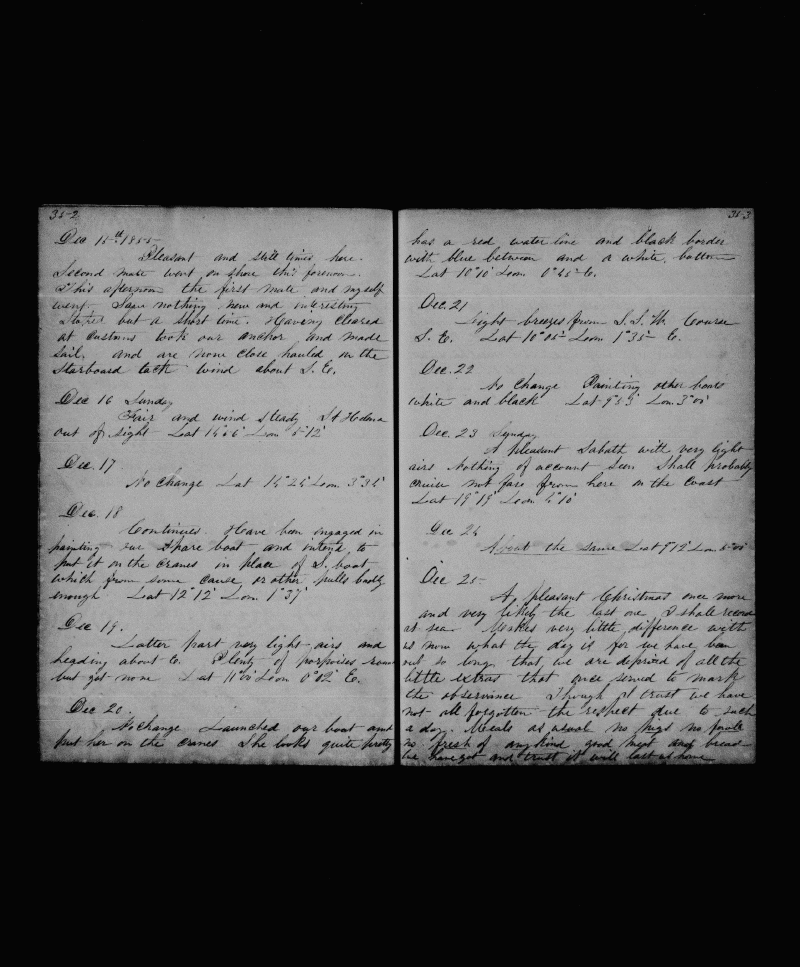 352
Dec 15th 1855
Pleasant and still lying here.
Second mate went on shore this forenoon.
This afternoon the first mate and myself
went. Saw nothing new and interesting
Staped but a short time. Having cleared
at Customs took our anchor and made
sail. and are now close hauled on the
Starboard tack wind about S.E.
Dec 16 Sunday
Fair and wind steady St Helena
out of sight Lat Lon 5°12'
Dec. 17
No change Lat 14°24' Lon 3°34'
Dec. 18
Continues. Have been engaged in
painting our Spare boat and intend to
put it on the cranes in place of S. boat
which from some cause or other pulls badly
enough Lat 12°12' Lon. 1°37'
Dec 19.
Latter part very light airs and
heading about E. Plenty of porpoises round
but got none Lat 11°00' Lon 0°02' E.
Dec 20.
No change Launched our boat and
put her on the cranes She looks quite pretty
353
has a red water line and black border
with blue between and a white bottom
Lat 10°10' Lon. 0°45' E.
Dec. 21
Light breezes from S.S.W. Course
S.E. Lat 10°05' Lon 1°35' E.
Dec. 22
No change Painting other boats
white and black Lat 9°53' Lon 3°00'
Dec. 23 Sunday
A pleasant Sabath with very light
airs Nothing of account Seen Shall probably
cruise not far from here on the Coast
Lat 19°19' Lon 4°10'
Dec 24
About the same Lat 9°12' Lon 5°00'
Dec 25
A pleasant Christmas once more
and very likely the last one I shall record
at sea. Makes very little difference with
us now what the day is for we have been
out so long. that we are deprived of all the
little extras that once served to mark
the observance Though I trust we have
not all forgotten the respect due to such
a day. Meals as usual no pigs no fowls
no fresh of any kind good meat and bread
we have got and trust it will last us home